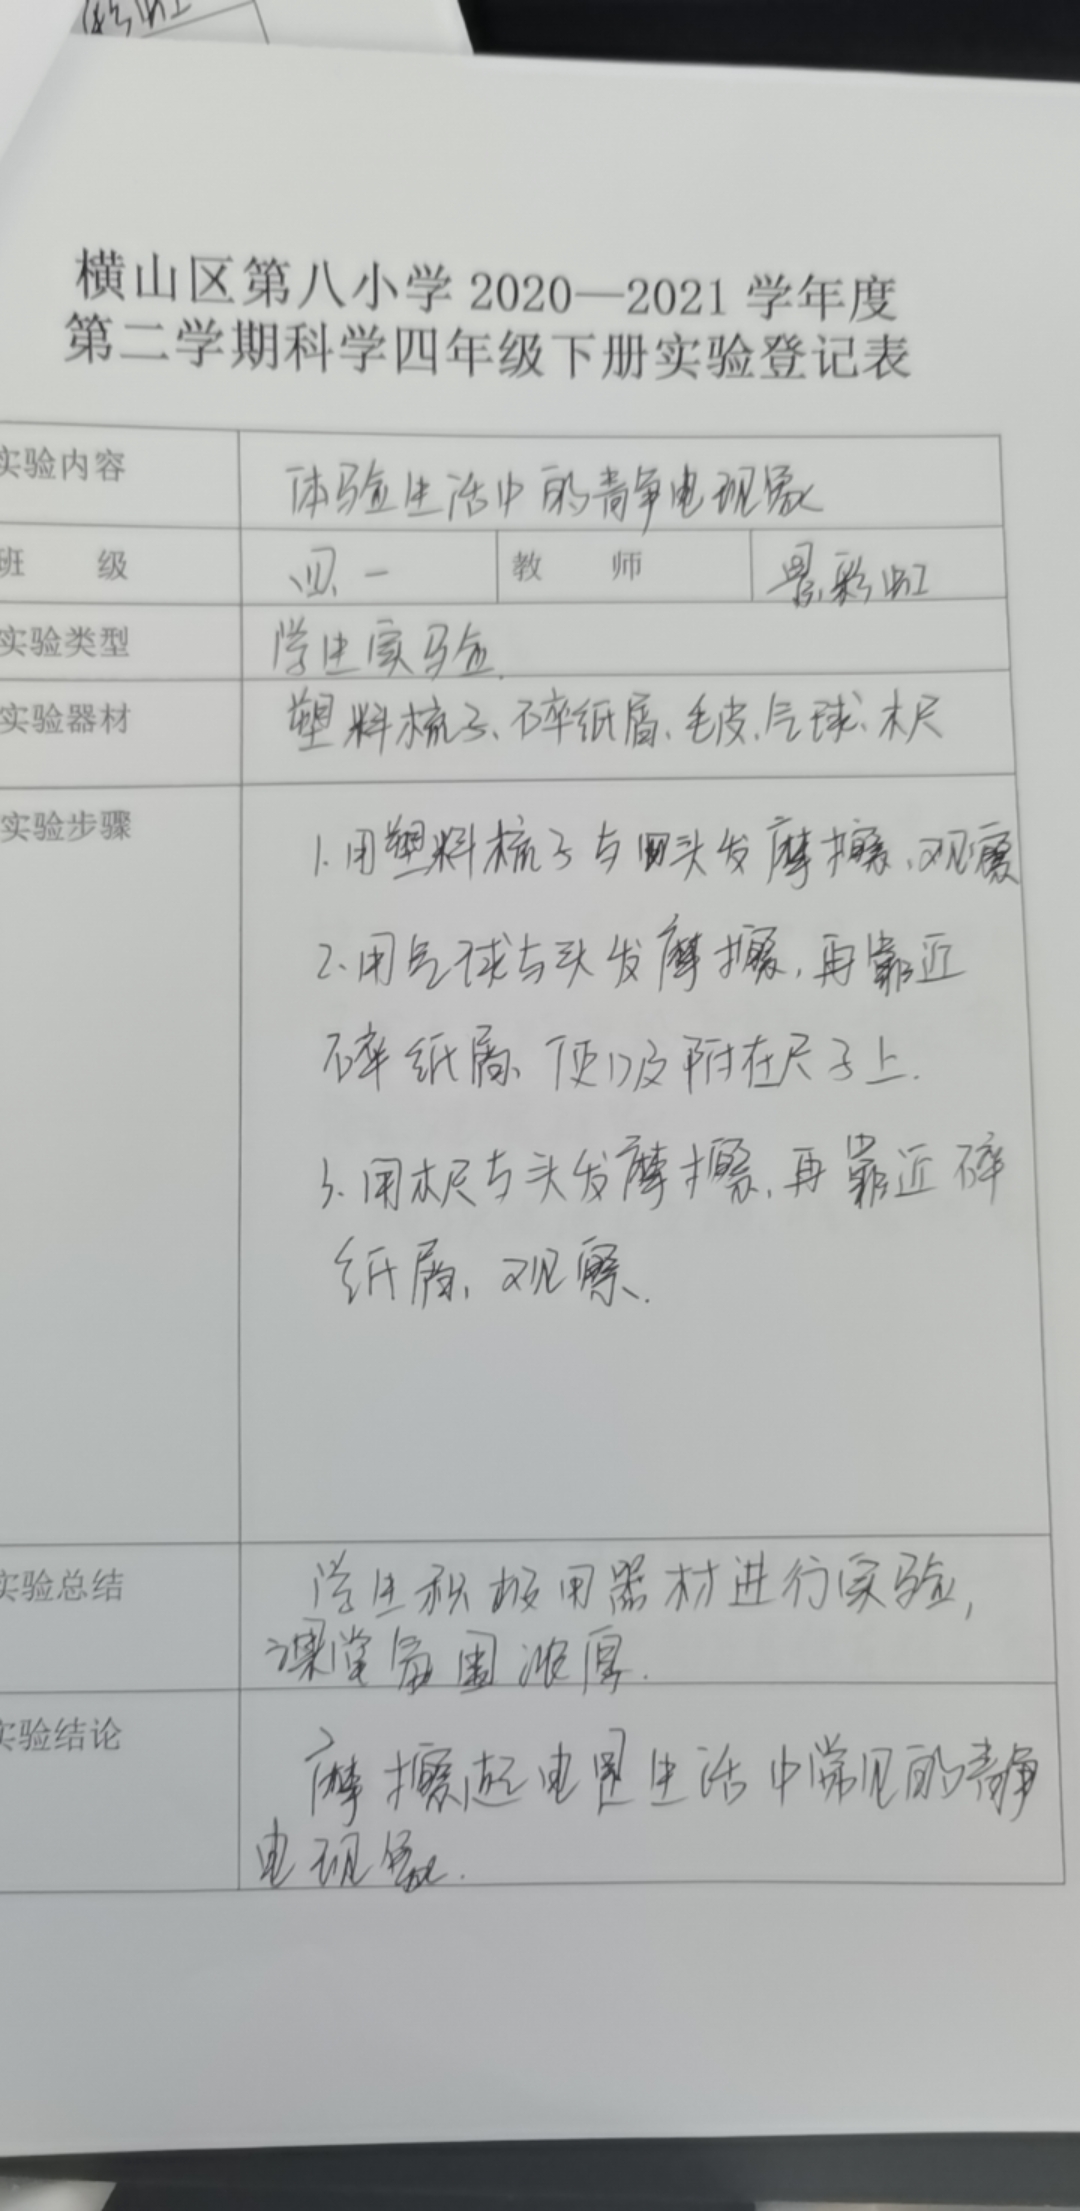 横山区第八小学 2020—2021 学年度
第二学期科学四年级下册实验登记表
实验内容 体验生活中的静电现象
班 级 四、一 教 师 景彩虹
实验类型 学生实验.
实验器材 塑料梳子、碎纸屑、毛皮、气球、木尺
实验步骤 1.用塑料梳子与头发摩擦、观察
2.用气球与头发摩擦,再靠近
碎纸屑、使吸附在尺子上.
3.用木尺与头发摩擦,再靠近碎
纸屑,观察.
实验总结 学生积极用器材进行实验,
课堂氛围浓厚.
实验结论 摩擦起电是生活中常见的静
电现象.